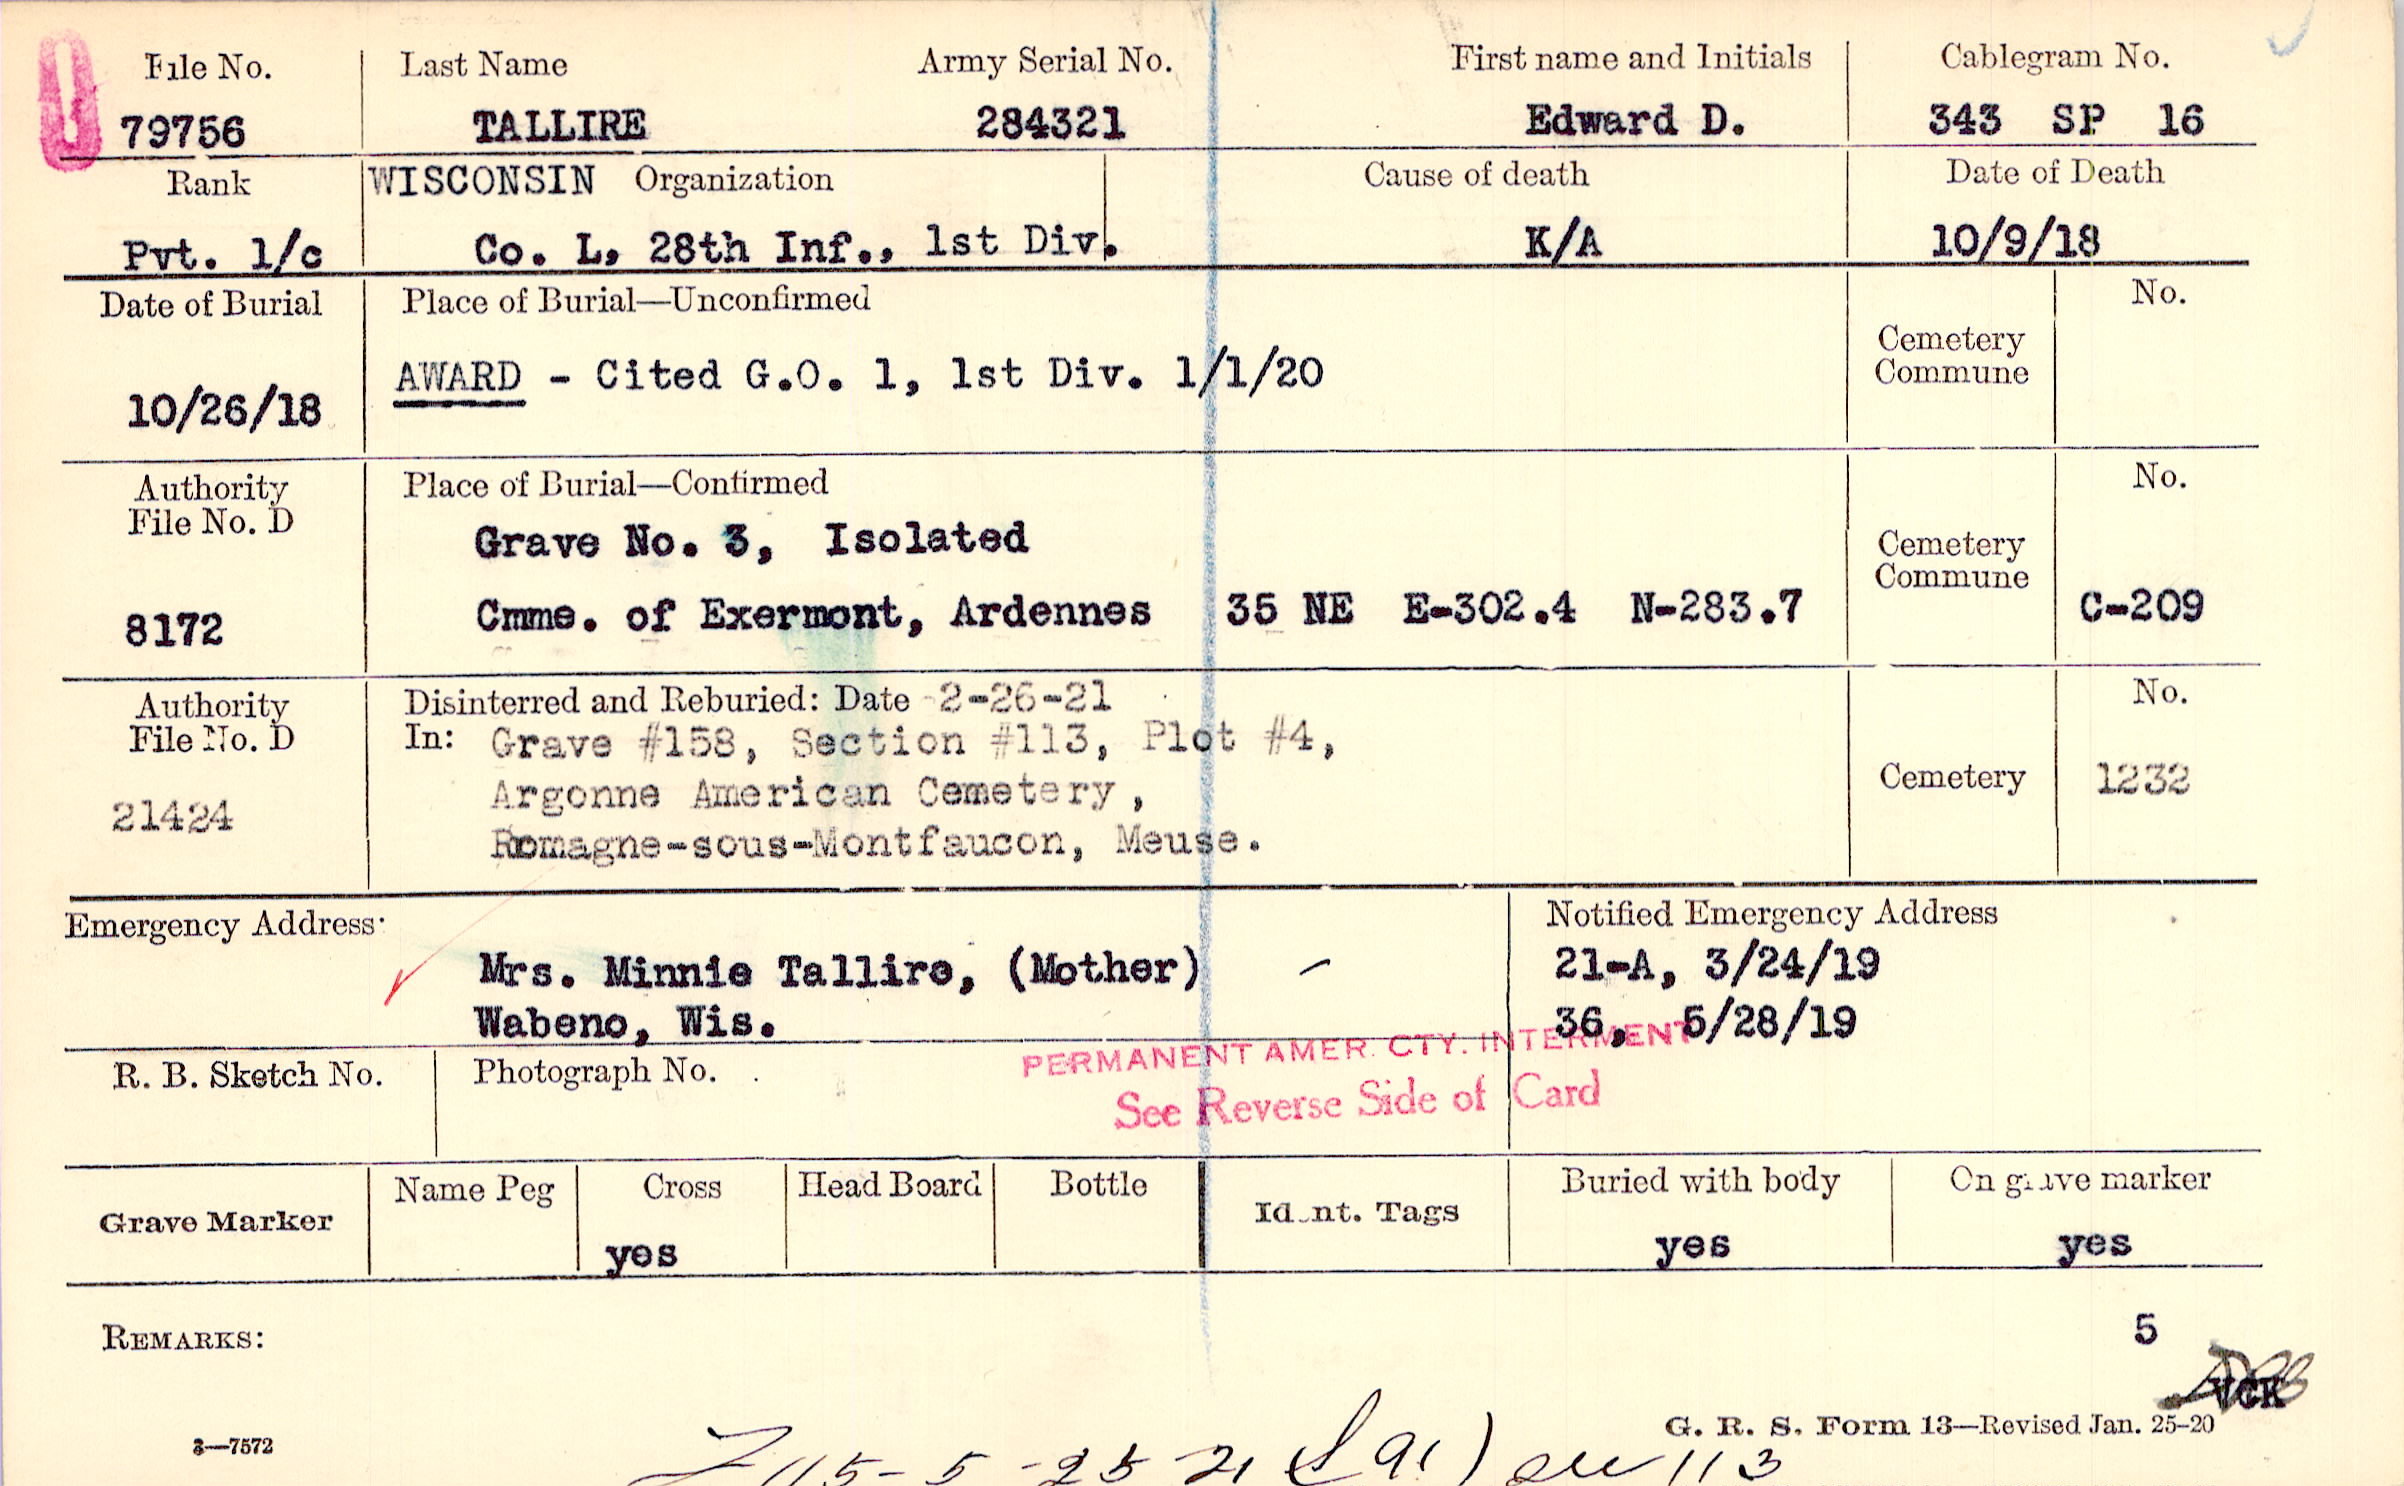 File No. Last Name Army Serial No. First name and Initials Cablegram No.
79756 TALLIRE 284321 Edward D. 343 SP 16
Rank WISCONSIN Organization Cause of death Date of Death
Pvt. 1/c Co. L, 28th Inf., 1st Div. K/A 10/9/18
Date of Burial Place of Burial—Unconfirmed No.
Cemetery
Commune
AWARD - Cited G.O. 1, 1st Div. 1/1/20
10/26/18
Authority Place of Burial—Confirmed No.
File No. D
Grave No. 3, Isolated Cemetery
Commune
8172 Cmme. of Exermont, Ardennes 35 NE E-302.4 N-283.7 C-209
Authority Disinterred and Reburied: Date 2-26-21 No.
File No. D In: Grave #158, Section #113, Plot #4,
21424 Argonne American Cemetery, Cemetery 1232
Romagne-sous-Montfaucon, Meuse.
Emergency Address: Notified Emergency Address
Mrs. Minnie Tallire, (Mother) 21-A, 3/24/19
Wabeno, Wis. 36, 5/28/19
PERMANENT AMER. CTY. INTERMENT
R. B. Sketch No. Photograph No.
See Reverse Side of Card
Name Peg Cross Head Board Bottle Buried with body On grave marker
Grave Marker Ident. Tags
yes yes yes
REMARKS: 5
VGK
G. R. S. Form 13—Revised Jan. 25-20
3—7572
115- 5-25-21 113